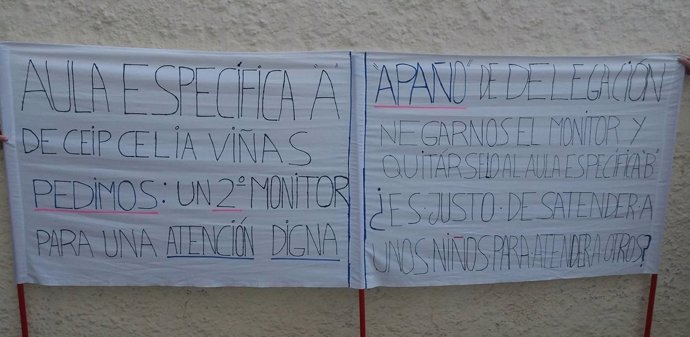 AULA ESPECÍFICA "A"
DE CEIP CELIA VIÑAS
PEDIMOS: UN 2º MONITOR
PARA UNA ATENCIÓN DIGNA
"APAÑO" DE DELEGACIÓN
NEGARNOS EL MONITOR Y
QUITÁRSELO AL AULA ESPECIFICA "B"
¿ES JUSTO DESATENDER A
UNOS NIÑOS PARA ATENDER A OTROS?